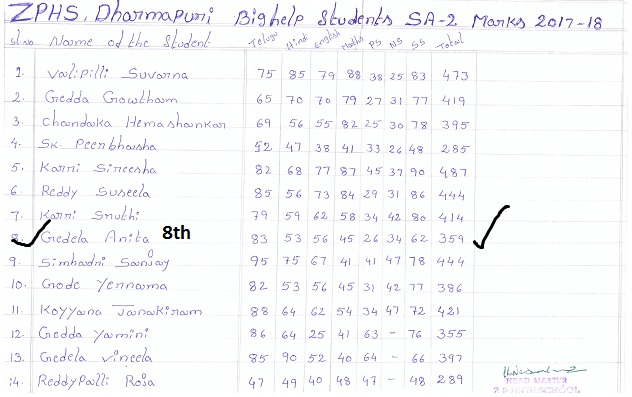 ZPHS, Dharmapuri Bighelp Students SA-2 Marks 2017-18
Sl.no Name of the Student Telugu Hindi english Maths PS NS SS Total
1. Valipilli Suvarna 75 85 79 88 38 25 83 473
2. Gedda Gowtham 65 70 70 79 27 31 77 419
3. Chandaka Hemashankar 69 56 55 82 25 30 78 395
4. Sk. Peenbhasha 52 47 38 41 33 26 48 285
5. Karri Sireesha 82 68 77 87 45 37 90 487
6. Reddy Suseela 85 56 73 84 29 31 86 444
7. Karri Sruthi 79 59 62 58 34 42 80 414
8. Gedela Anita 8th 83 53 56 45 26 34 62 359
9. Simhadri Sanjay 95 75 67 41 41 47 78 444
10. Gode Yerrama 82 53 56 45 31 42 77 386
11. Koyyana Janakiram 88 64 62 54 34 47 72 421
12. Gedda Yamini 86 64 25 41 63 - 76 355
13. Gedela Vineela 85 90 52 40 64 - 66 397
14. ReddyPalli Roja 47 49 40 48 47 - 48 289
HEAD MASTER
Z.P.HIGH SCHOOL